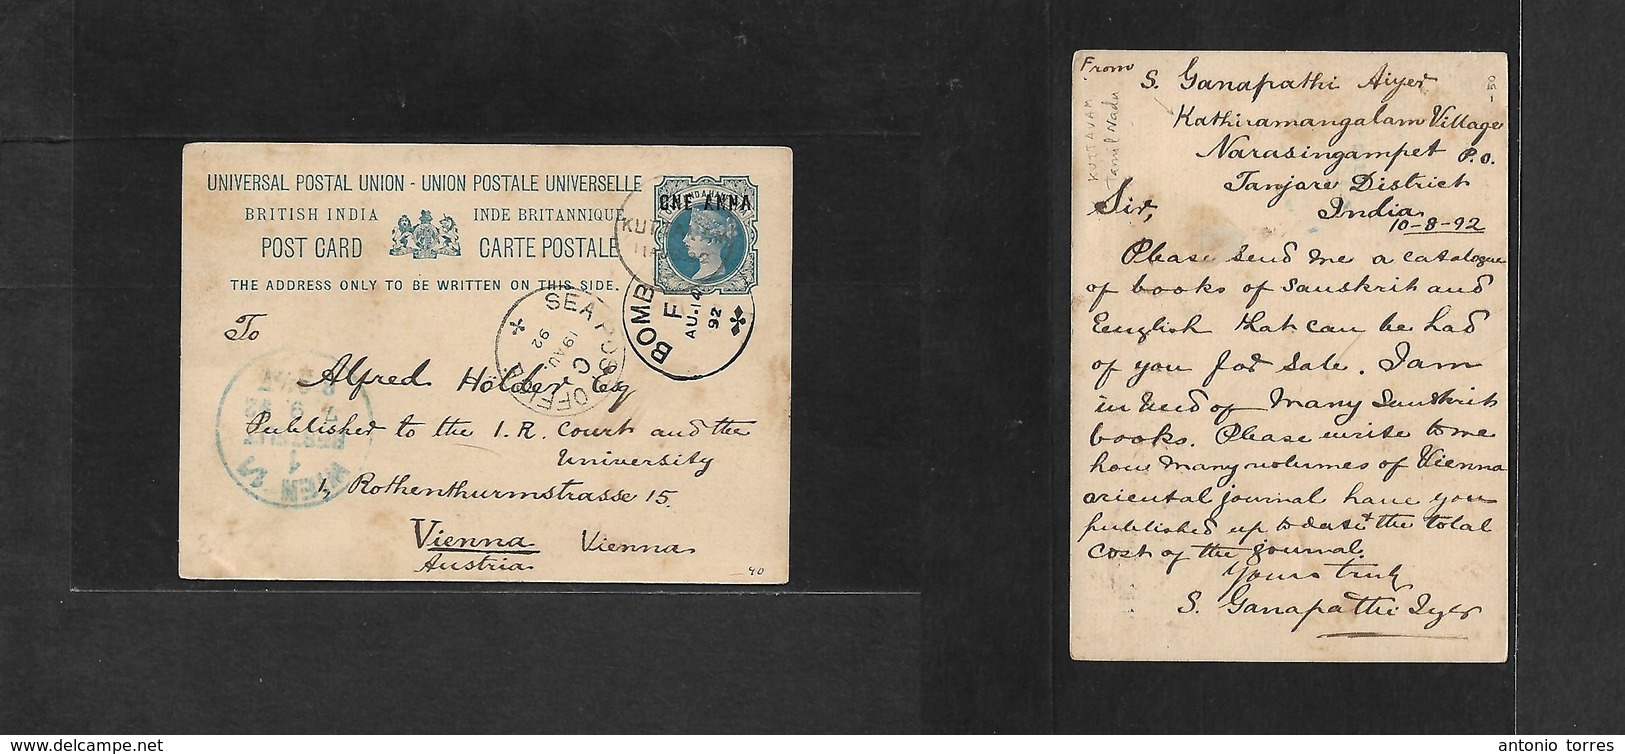 UNIVERSAL POSTAL UNION - UNION POSTALE UNIVERSELLE
BRITISH INDIA INDE BRITANNIQUE
POST CARD CARTE POSTALE
THE ADDRESS ONLY TO BE WRITTEN ON THIS SIDE.
ONE ANNA
KUTT
BOMB
F
AU.14
92
SEA POST OFFICE
C
19 AU.
92
WIEN
1
BESTELLT
To
Alfred Hölder Esq
Published to the I. R. Court and the
University
1, Rothenthurmstrasse 15.
Vienna Vienna
Austria
-40
From
S. Ganapathi Aiyer
Kathiramangalam Village
Narasingampet P.O.
Tanjore District
India
10-8-92
KUTTAVAM
Tamil Nadu
-50
Sir,
Please send me a catalogue
of books of Sanskrit and
Eenglish that can be had
of you for sale. I am
in need of many Sanskrit
books. Please write to me
how many volumes of Vienna
oriental journal have you
published up to date & the total
cost of the journal.
Yours truly
S. Ganapathi Iyer
antonio torres
delcampe.net